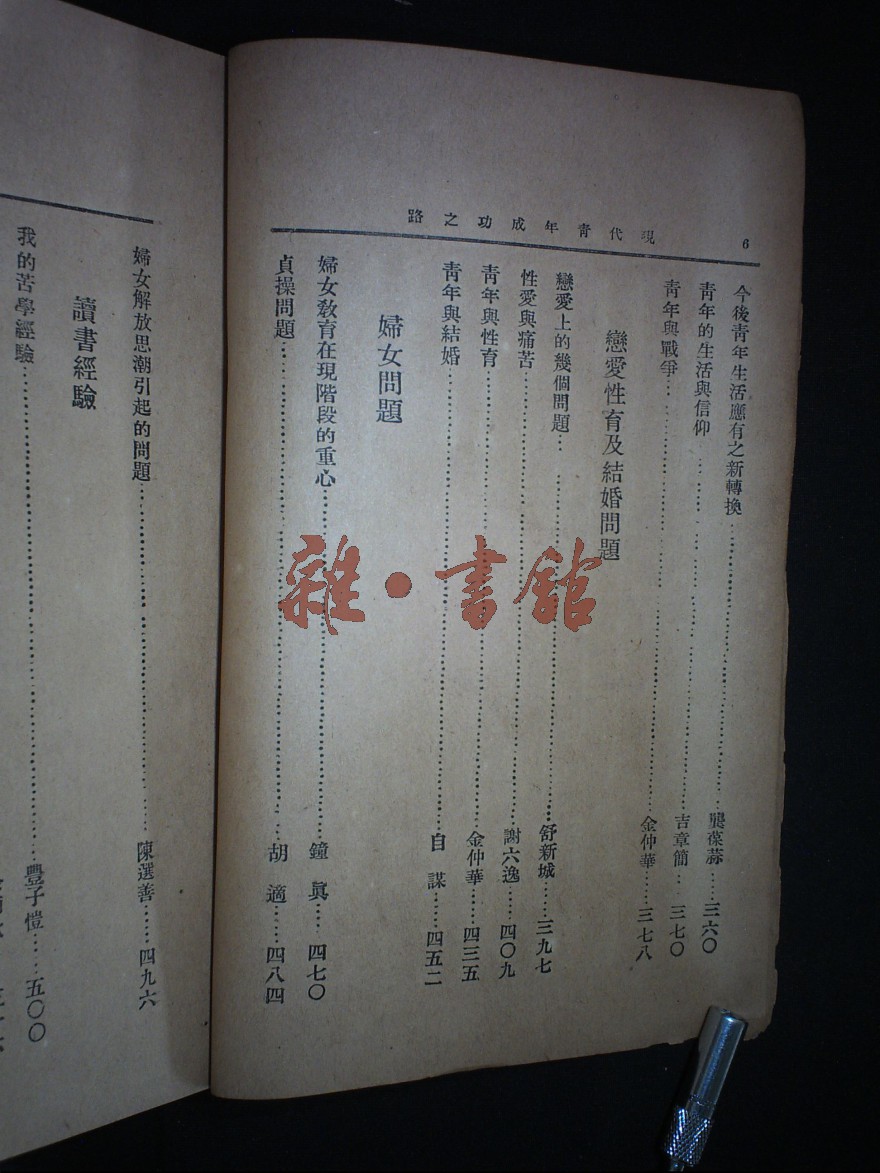 6
現代青年成功之路
今後青年生活應有之新轉換……龔葆蒜……三六〇
青年的生活與信仰……吉章簡……三七〇
青年與戰爭……金仲華……三七八
戀愛性育及結婚問題
戀愛上的幾個問題……舒新城……三九七
性愛與痛苦……謝六逸……四〇九
青年與性育……金仲華……四三五
青年與結婚……自謀……四五二
婦女問題
婦女敎育在現階段的重心……鐘眞……四七〇
貞操問題……胡適……四八四
婦女解放思潮引起的問題……陳選善……四九六
讀書經驗
我的苦學經驗……豐子愷……五〇〇
雜·書館